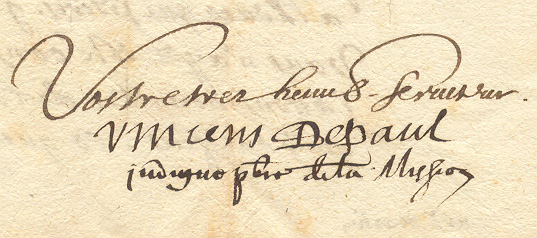 Vostre tres humb. serviteur.
Vincens Depaul
indigne pbre dela Mission